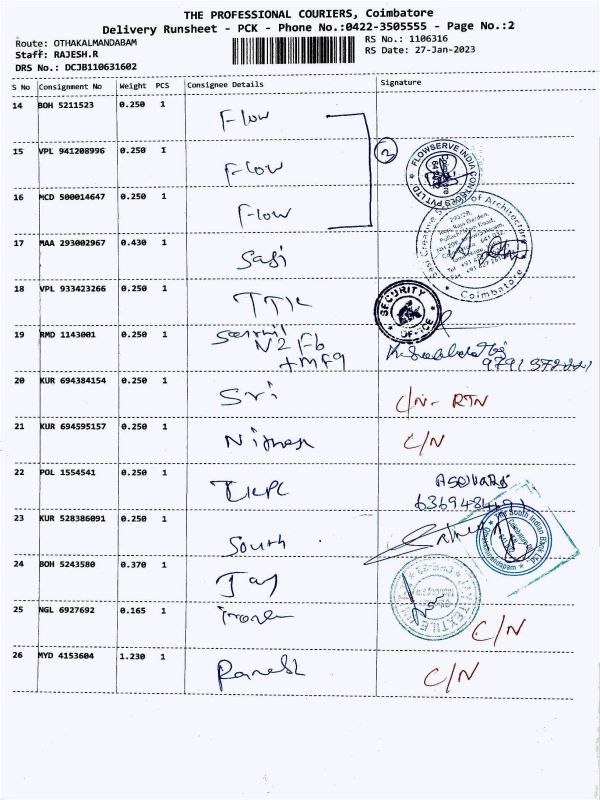 THE PROFESSIONAL COURIERS, Coimbatore
Delivery Runsheet - PCK - Phone No.:0422-3505555 - Page No.:2
Route: OTHAKALMANDABAM
Staff: RAJESH.R
DRS No.: DCJB110631602
RS No.: 1106316
RS Date: 27-Jan-2023
S No Consignment No Weight PCS Consignee Details Signature
14 BOH 5211523 0.250 1 Flow
2
15 VPL 941208996 0.250 1 Flow
FLOWSERVE INDIA CONTROLS PVT LTD
16 MCD 500014647 0.250 1 Flow
17 MAA 293002967 0.430 1 Sasi
Sasi Creative School of Architecture
Coimbatore
18 VPL 933423266 0.250 1 TTK
SECURITY OFFICE
19 RMD 1143001 0.250 1
20 KUR 694384154 0.250 1 Sri C/N - RTN
21 KUR 694595157 0.250 1 C/N
22 POL 1554541 0.250 1
23 KUR 528386091 0.250 1 South
The South Indian Bank Ltd
24 BOH 5243580 0.370 1 Jay
25 NGL 6927692 0.165 1 C/N
26 MYD 4153604 1.230 1 C/N